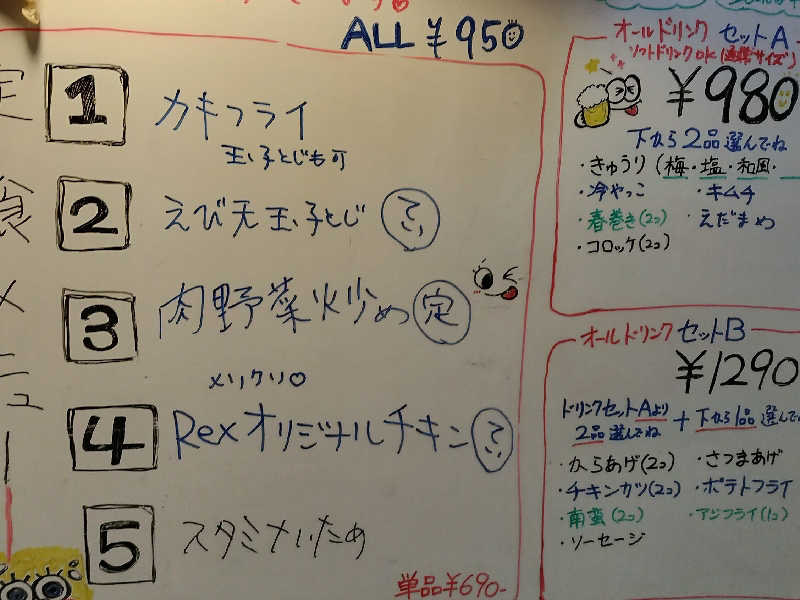 ALL ¥950
定食メニュー
1 カキフライ
玉子とじも可
2 えび天玉子とじ てい
3 肉野菜炒め 定
メリクリ
4 Rexオリジナルチキン てい
5 スタミナいため
単品¥690-
オールドリンク セットA
ソフトドリンクOK(通常サイズ)
¥980
下から2品選んでね
・きゅうり(梅・塩・和風・
・冷やっこ ・キムチ
・春巻き(2コ) ・えだまめ
・コロッケ(2コ)
オールドリンク セットB
¥1290
ドリンクセットAより2品選んでね + 下から1品選んで
・からあげ(2コ) ・さつまあげ
・チキンカツ(2コ) ・ポテトフライ
・南蛮(2コ) ・アジフライ(1コ)
・ソーセージ